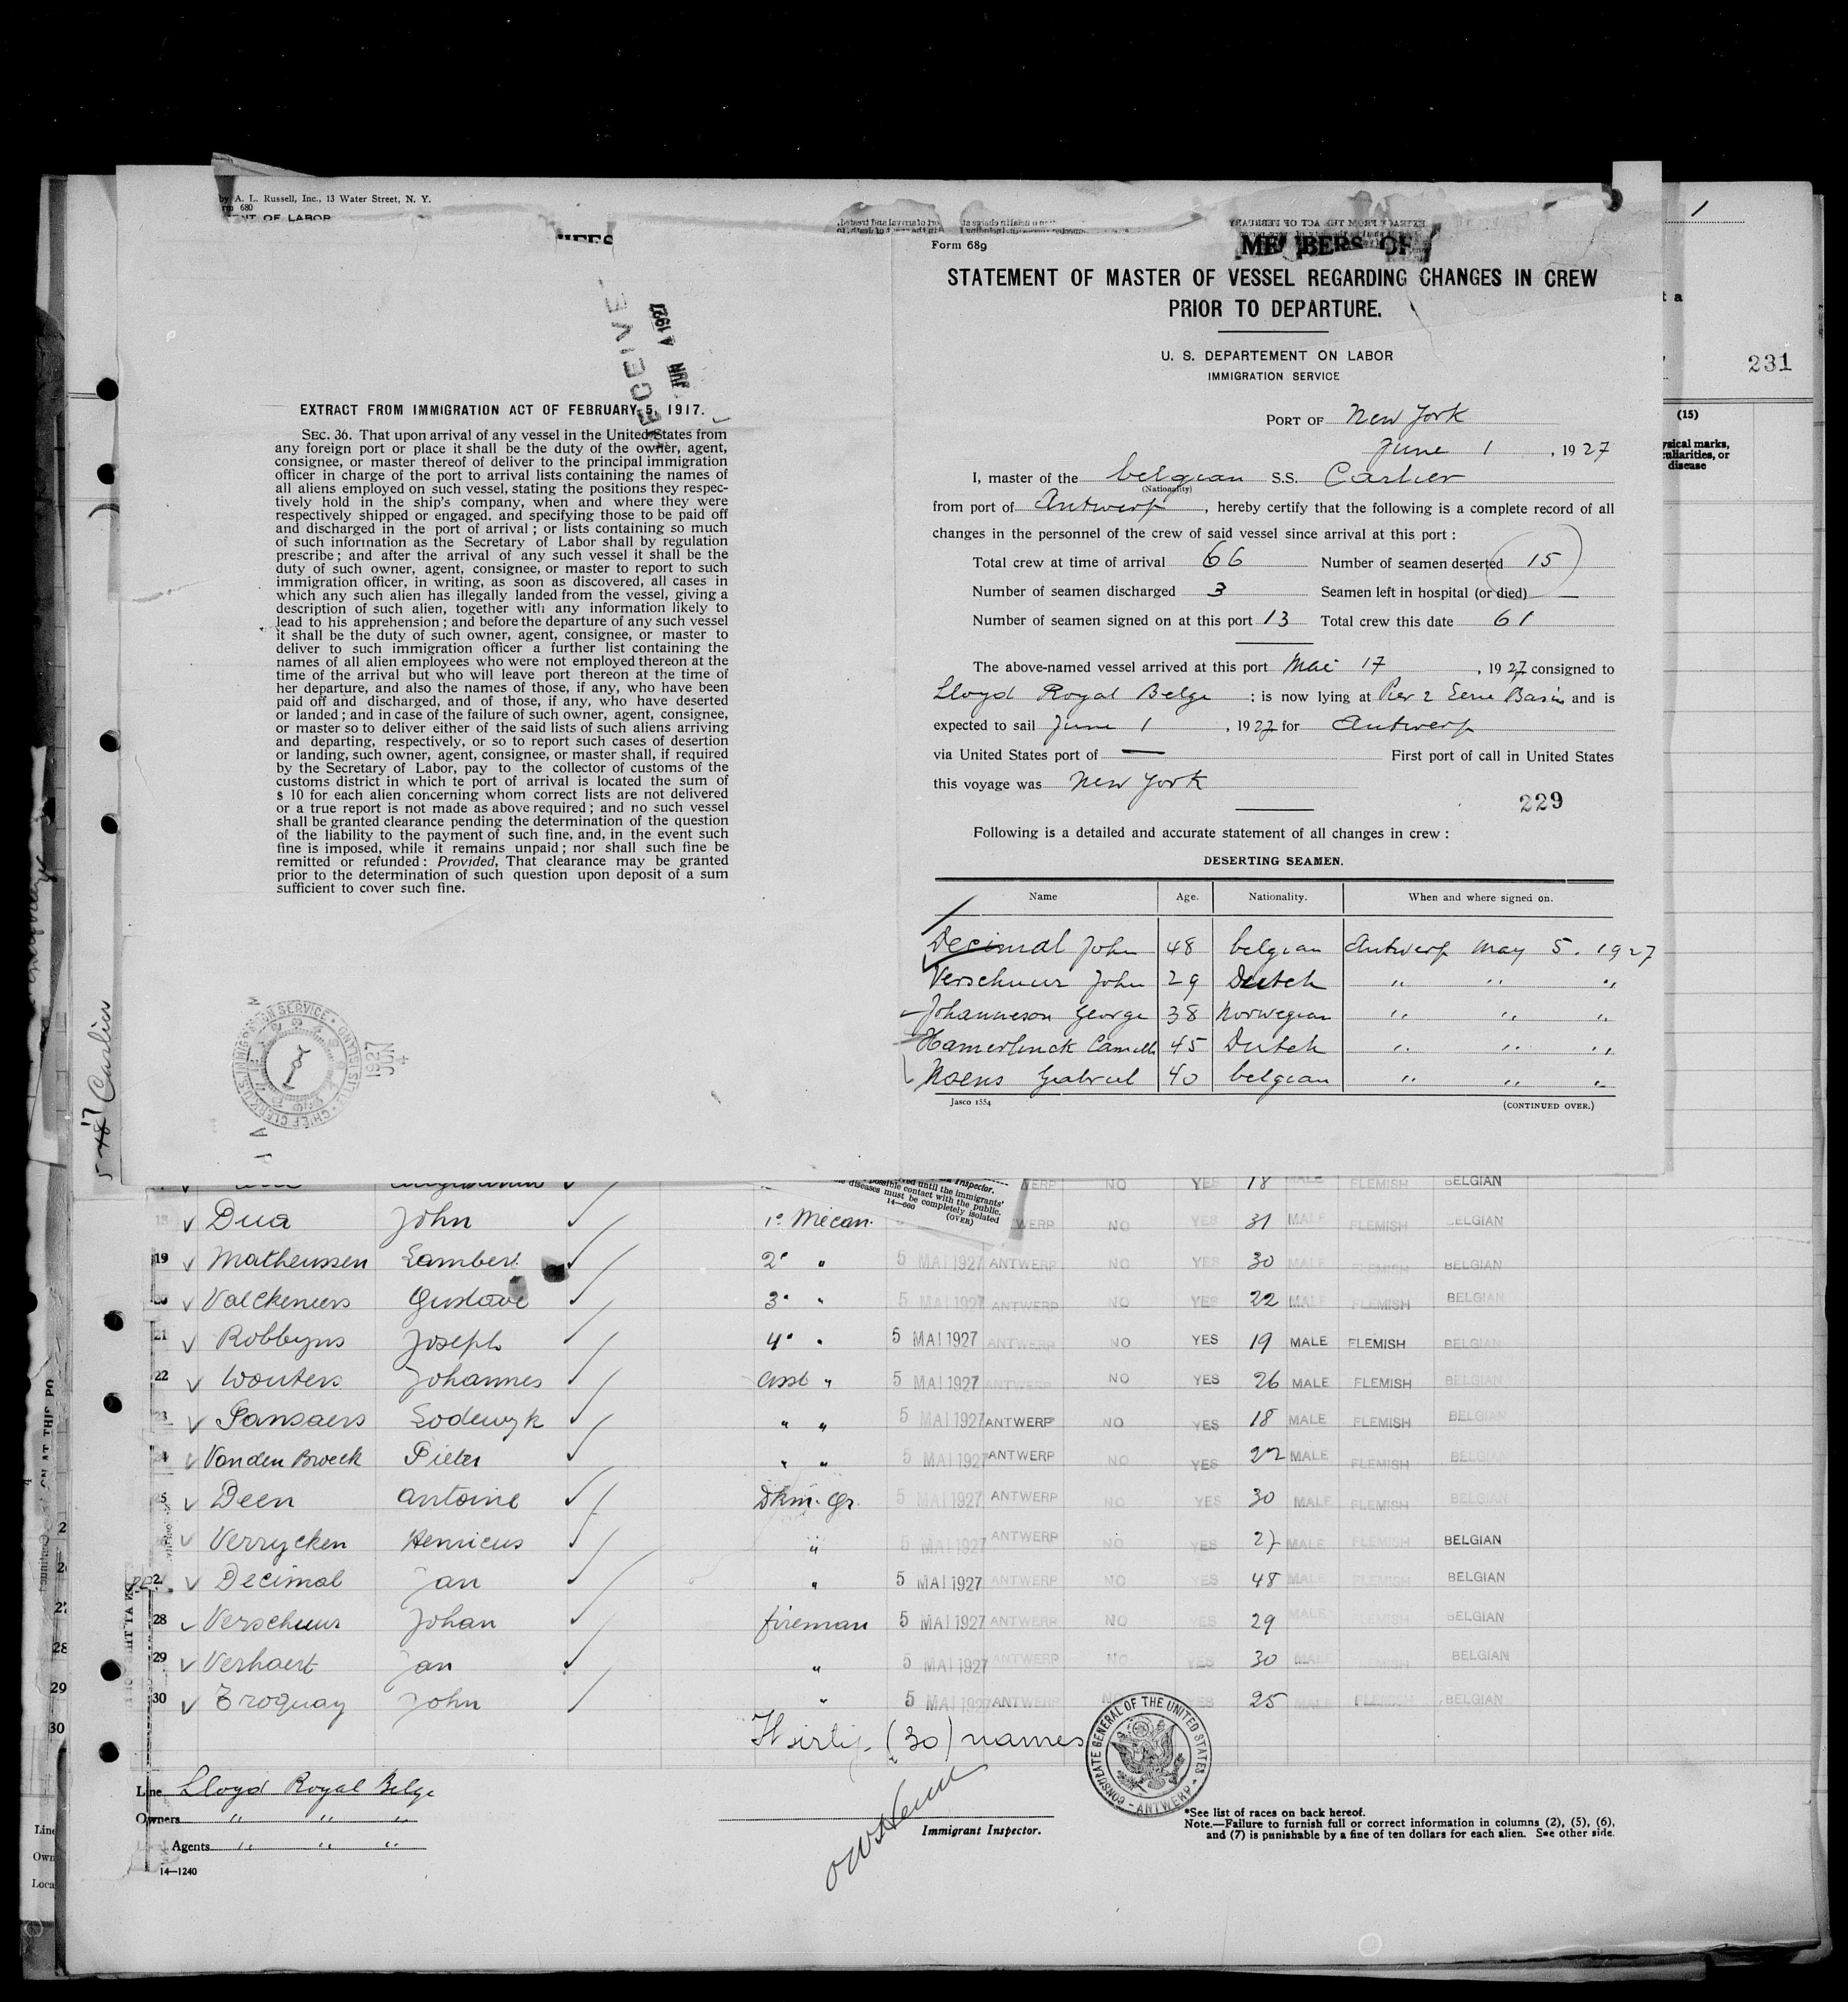 by A. L. Russell, Inc., 13 Water Street, N. Y.
rm 680
ENT OF LABOR
RECEIVE
JUN 4 1927
EXTRACT FROM IMMIGRATION ACT OF FEBRUARY 5, 1917.
SEC. 36. That upon arrival of any vessel in the United States from
any foreign port or place it shall be the duty of the owner, agent,
consignee, or master thereof of deliver to the principal immigration
officer in charge of the port to arrival lists containing the names of
all aliens employed on such vessel, stating the positions they respec-
tively hold in the ship's company, when and where they were
respectively shipped or engaged. and specifying those to be paid off
and discharged in the port of arrival ; or lists containing so much
of such information as the Secretary of Labor shall by regulation
prescribe ; and after the arrival of any such vessel it shall be the
duty of such owner, agent, consignee, or master to report to such
immigration officer, in writing, as soon as discovered, all cases in
which any such alien has illegally landed from the vessel, giving a
description of such alien, together with any information likely to
lead to his apprehension ; and before the departure of any such vessel
it shall be the duty of such owner, agent, consignee, or master to
deliver to such immigration officer a further list containing the
names of all alien employees who were not employed thereon at the
time of the arrival but who will leave port thereon at the time of
her departure, and also the names of those, if any, who have been
paid off and discharged, and of those, if any, who have deserted
or landed ; and in case of the failure of such owner, agent, consignee,
or master so to deliver either of the said lists of such aliens arriving
and departing, respectively, or so to report such cases of desertion
or landing, such owner, agent, consignee, or master shall, if required
by the Secretary of Labor, pay to the collector of customs of the
customs district in which te port of arrival is located the sum of
$ 10 for each alien concerning whom correct lists are not delivered
or a true report is not made as above required ; and no such vessel
shall be granted clearance pending the determination of the question
of the liability to the payment of such fine, and, in the event such
fine is imposed, while it remains unpaid ; nor shall such fine be
remitted or refunded : Provided, That clearance may be granted
prior to the determination of such question upon deposit of a sum
sufficient to cover such fine.
1927 JUN 4
Carlier
Form 689
MEMBERS OF
STATEMENT OF MASTER OF VESSEL REGARDING CHANGES IN CREW
PRIOR TO DEPARTURE.
U. S. DEPARTEMENT ON LABOR
IMMIGRATION SERVICE
PORT OF New York
June 1 , 1927
I, master of the belgian S.S. Carlier
(Nationality)
from port of Antwerp , hereby certify that the following is a complete record of all
changes in the personnel of the crew of said vessel since arrival at this port :
Total crew at time of arrival 66 Number of seamen deserted 15
Number of seamen discharged 3 Seamen left in hospital (or died) —
Number of seamen signed on at this port 13 Total crew this date 61
The above-named vessel arrived at this port Mai 17 , 1927 consigned to
Lloyd Royal Belge : is now lying at Pier 2 Erie Basin and is
expected to sail June 1 , 1927 for Antwerp
via United States port of — First port of call in United States
this voyage was New York
229
Following is a detailed and accurate statement of all changes in crew :
DESERTING SEAMEN.
Name Age. Nationality. When and where signed on.
Decimal John 48 belgian Antwerp May 5. 1927
Verschuur John 29 Dutch " " "
Johanneson George 38 Norwegian " " "
Hamerlinck Camille 45 Dutch " " "
Noens Gabriel 40 belgian " " "
Jasco 1554 (CONTINUED OVER.)
1
t a
231
(15)
ysical marks,
culiarities, or
disease
Inspector.
ved until the immigrants'
possible contact with the public.
diseases must be completely isolated
14—600 (OVER)
WERP NO YES 18 MALE FLEMISH BELGIAN
18 Dua John 1° Mecan. WERP NO YES 31 MALE FLEMISH BELGIAN
19 Matheussen Lambert 2° " 5 MAI 1927 ANTWERP NO YES 30 MALE FLEMISH BELGIAN
20 Valckeneers Gustave 3° " 5 MAI 1927 ANTWERP NO YES 22 MALE FLEMISH BELGIAN
21 Robbyns Joseph 4° " 5 MAI 1927 ANTWERP NO YES 19 MALE FLEMISH BELGIAN
22 Wouters Johannes asst " 5 MAI 1927 ANTWERP NO YES 26 MALE FLEMISH BELGIAN
23 Pansaers Lodewyk " " 5 MAI 1927 ANTWERP NO YES 18 MALE FLEMISH BELGIAN
24 Vanden Broeck Pieter " " 5 MAI 1927 ANTWERP NO YES 22 MALE FLEMISH BELGIAN
25 Deen Antoine Dkm. Gr. 5 MAI 1927 ANTWERP NO YES 30 MALE FLEMISH BELGIAN
Verrycken Henricus " 5 MAI 1927 ANTWERP NO YES 27 MALE FLEMISH BELGIAN
2 Decimal Jan " 5 MAI 1927 ANTWERP NO YES 48 MALE FLEMISH BELGIAN
28 Verschuur Johan fireman 5 MAI 1927 ANTWERP NO YES 29 MALE FLEMISH BELGIAN
29 Verhaert Jan " 5 MAI 1927 ANTWERP NO YES 30 MALE FLEMISH BELGIAN
30 Troquay John " 5 MAI 1927 ANTWERP NO YES 25 MALE FLEMISH BELGIAN
Thirty (30) names
CONSULATE GENERAL OF THE UNITED STATES · ANTWERP ·
Line Lloyd Royal Belge
Owners " " "
Agents " " "
14—1240
Immigrant Inspector.
*See list of races on back hereof.
Note.—Failure to furnish full or correct information in columns (2), (5), (6),
and (7) is punishable by a fine of ten dollars for each alien. See other side.
28
29
30
Line
Own
Loca